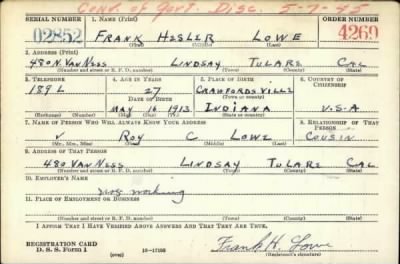 Conv. of Govt. Disc. 5-7-45
SERIAL NUMBER 1. NAME (Print) ORDER NUMBER
02852 FRANK HESLER LOWE 4269
(First) (Middle) (Last)
2. ADDRESS (Print)
480 N. VAN NESS LINDSAY TULARE CAL
(Number and street or R. F. D. number) (Town) (County) (State)
3. TELEPHONE 4. AGE IN YEARS 5. PLACE OF BIRTH 6. COUNTRY OF CITIZENSHIP
189 L 27 CRAWFORDSVILLE
DATE OF BIRTH (Town or county)
MAY 16 1913 INDIANA U.S.A
(Exchange) (Number) (Mo.) (Day) (Yr.) (State or country)
7. NAME OF PERSON WHO WILL ALWAYS KNOW YOUR ADDRESS 8. RELATIONSHIP OF THAT PERSON
ROY C LOWE COUSIN
(Mr., Mrs., Miss) (First) (Middle) (Last)
9. ADDRESS OF THAT PERSON
480 VAN NESS LINDSAY TULARE CAL
(Number and street or R. F. D. number) (Town) (County) (State)
10. EMPLOYER'S NAME
not working
11. PLACE OF EMPLOYMENT OR BUSINESS
(Number and street or R. F. D. number) (Town) (County) (State)
I AFFIRM THAT I HAVE VERIFIED ABOVE ANSWERS AND THAT THEY ARE TRUE.
REGISTRATION CARD
D. S. S. Form 1 (over) 16-17105
Frank H. Lowe
(Registrant's signature)